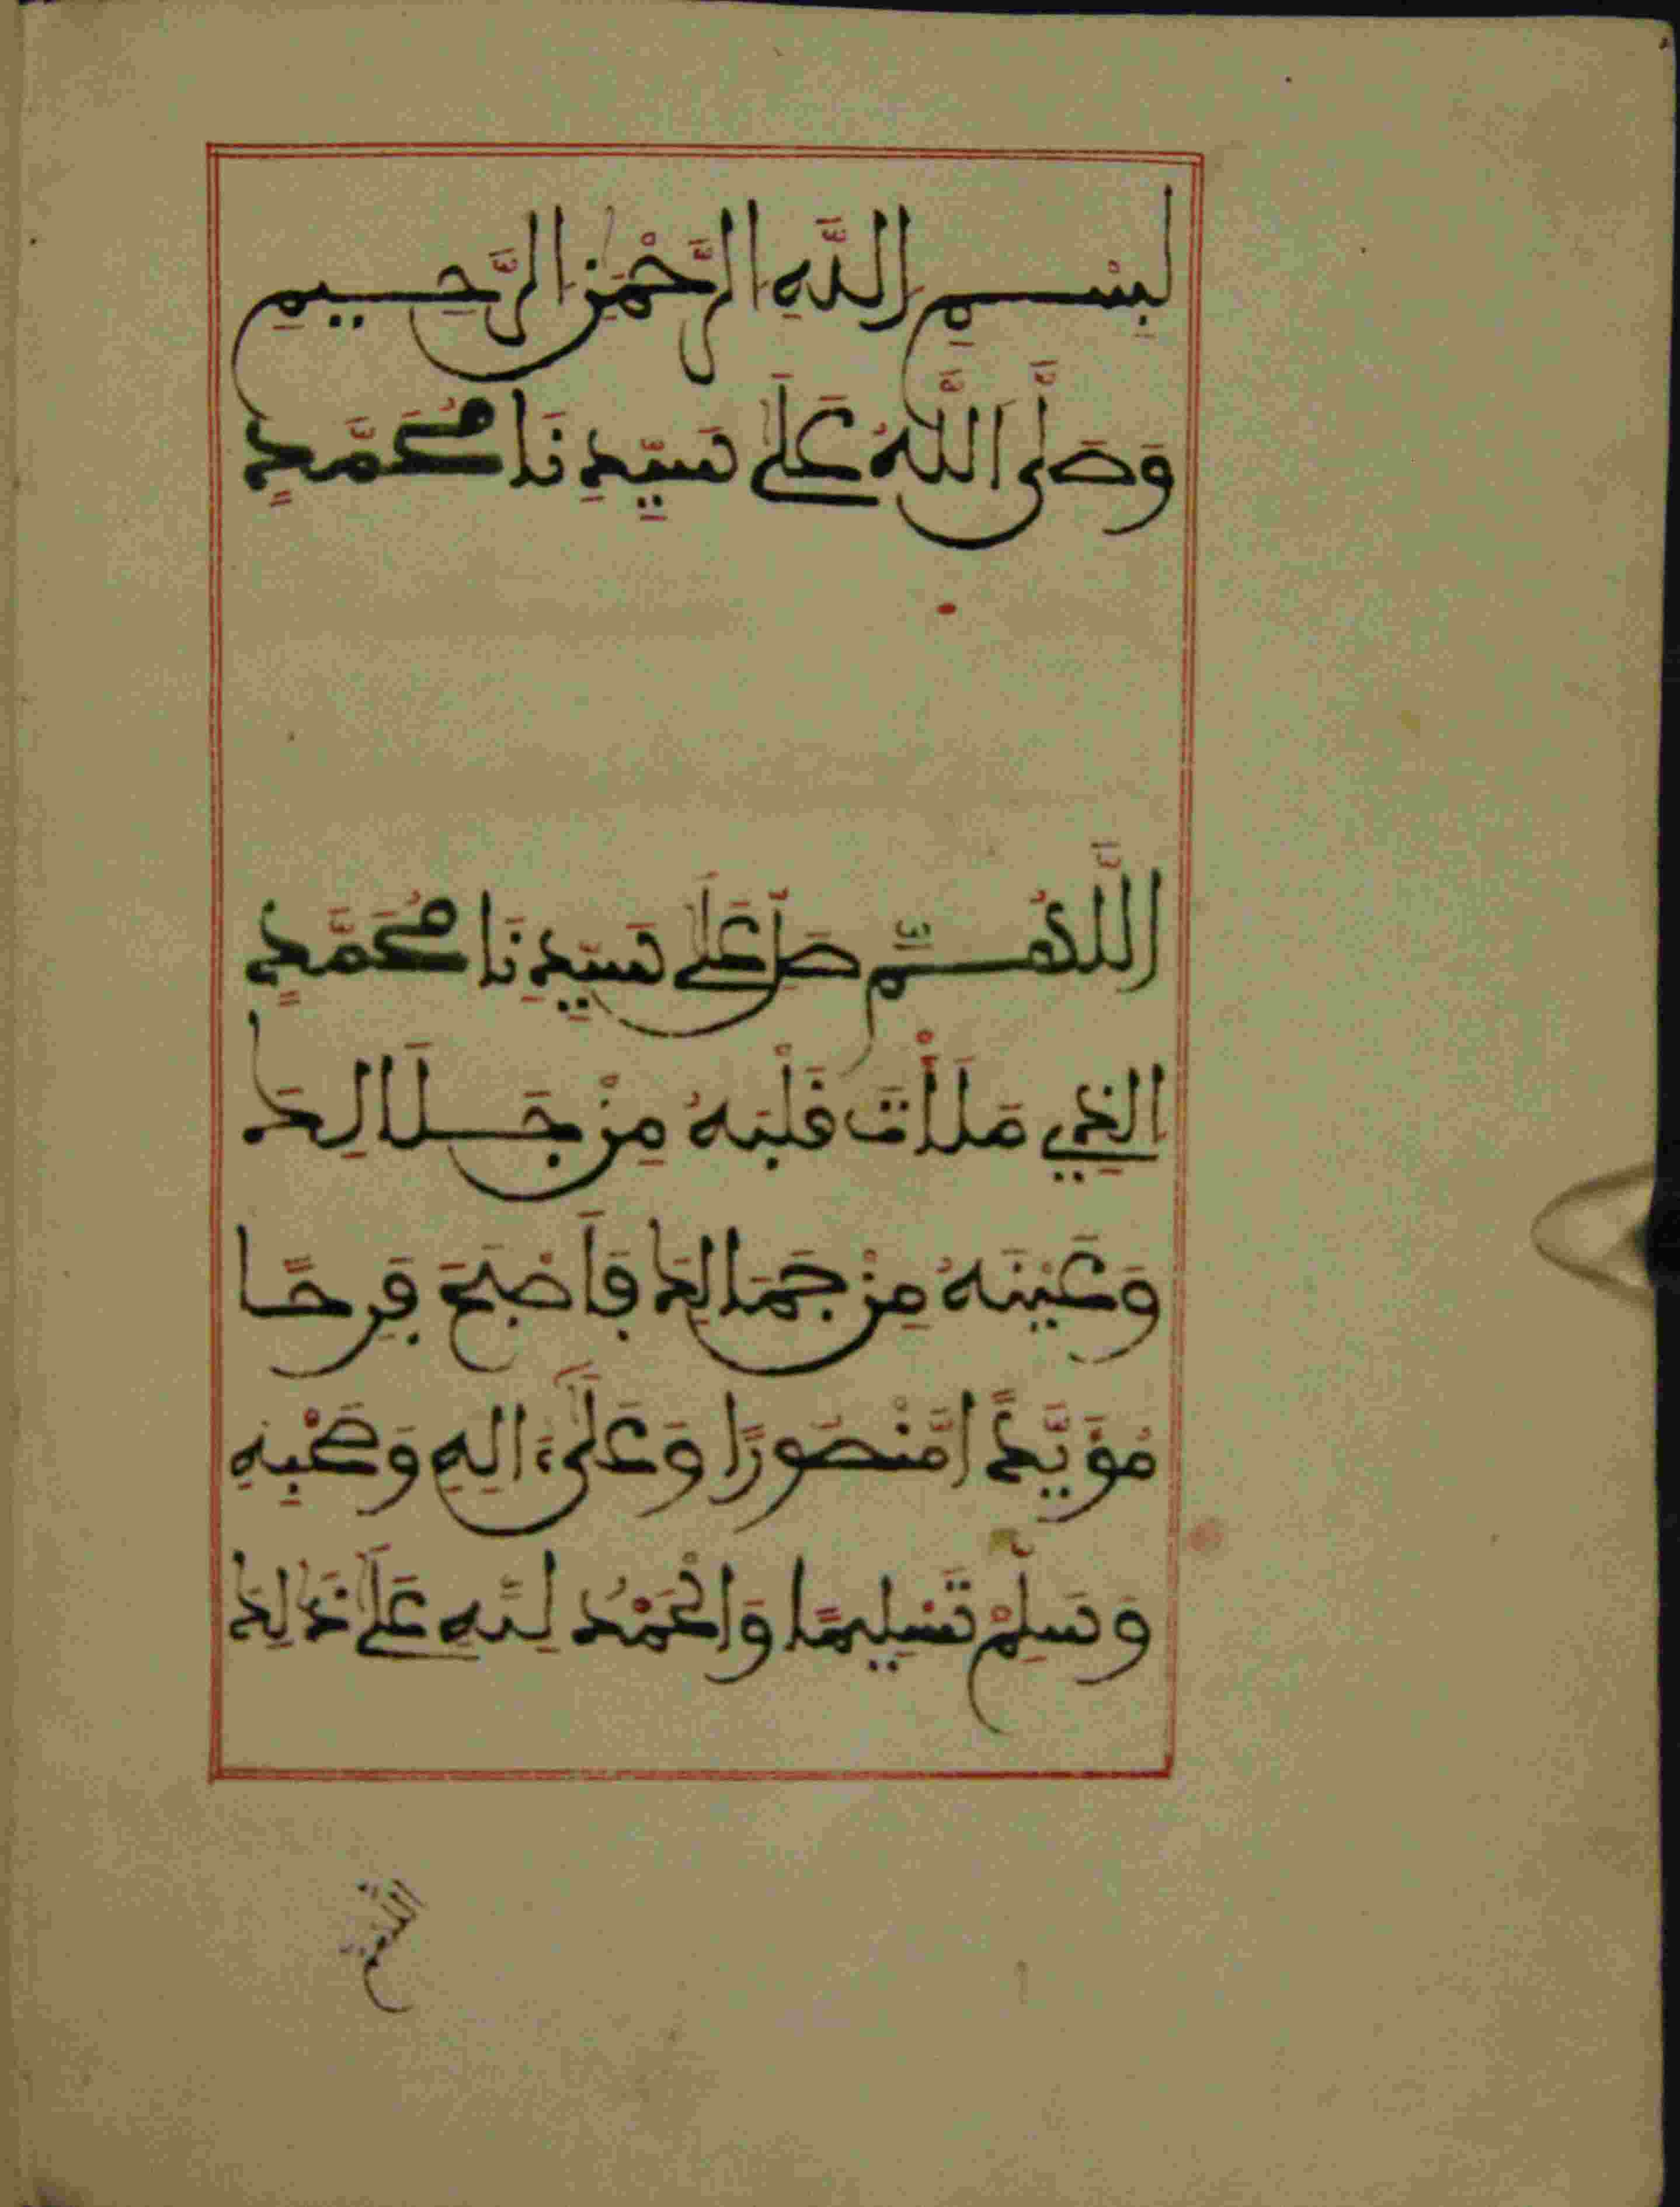 بِسْمِ اللَّهِ الرَّحْمَنِ الرَّحِيمِ
وَصَلَّى اللَّهُ عَلَى سَيِّدِنَا مُحَمَّدٍ
اللَّهُمَّ صَلِّ عَلَى سَيِّدِنَا مُحَمَّدٍ
الَّذِي مَلَأْتَ قَلْبَهُ مِنْ جَلَالِكَ
وَعَيْنَهُ مِنْ جَمَالِكَ فَأَصْبَحَ فَرِحًا
مُؤَيَّدًا مَّنْصُورًا وَعَلَى ءَالِهِ وَصَحْبِهِ
وَسَلِّمْ تَسْلِيمًا وَالْحَمْدُ لِلَّهِ عَلَى ذَلِكَ
اللهم